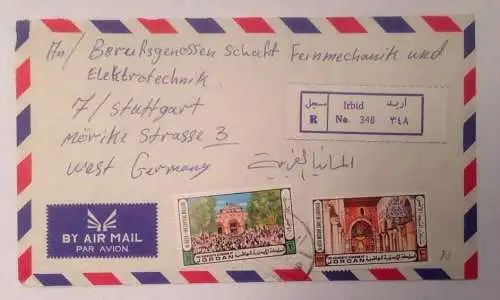 An/ Berufsgenossenschaft Feinmechanik und
Elektrotechnik
7/Stuttgart
Mörike Strasse 3
West Germany
المانيا الغربية
مسجل Irbid اربد
R No. 348 ٣٤٨
BY AIR MAIL
PAR AVION
JORDAN
JORDAN